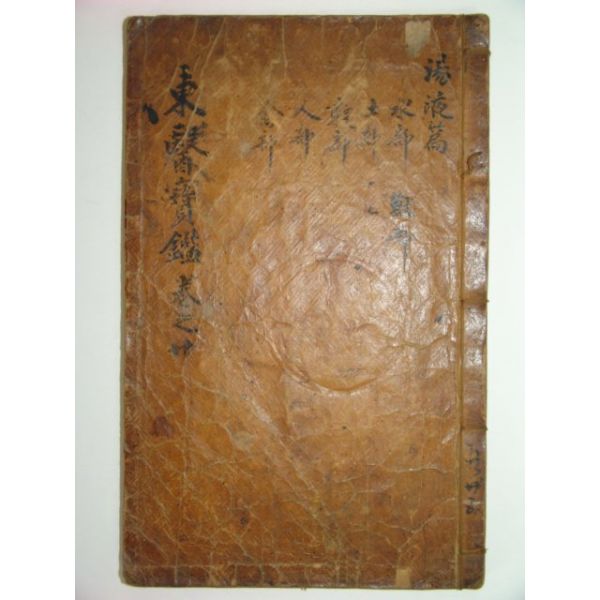 湯液篇
水部
土部
穀部
人部
金部
東醫寶鑑 卷之廿